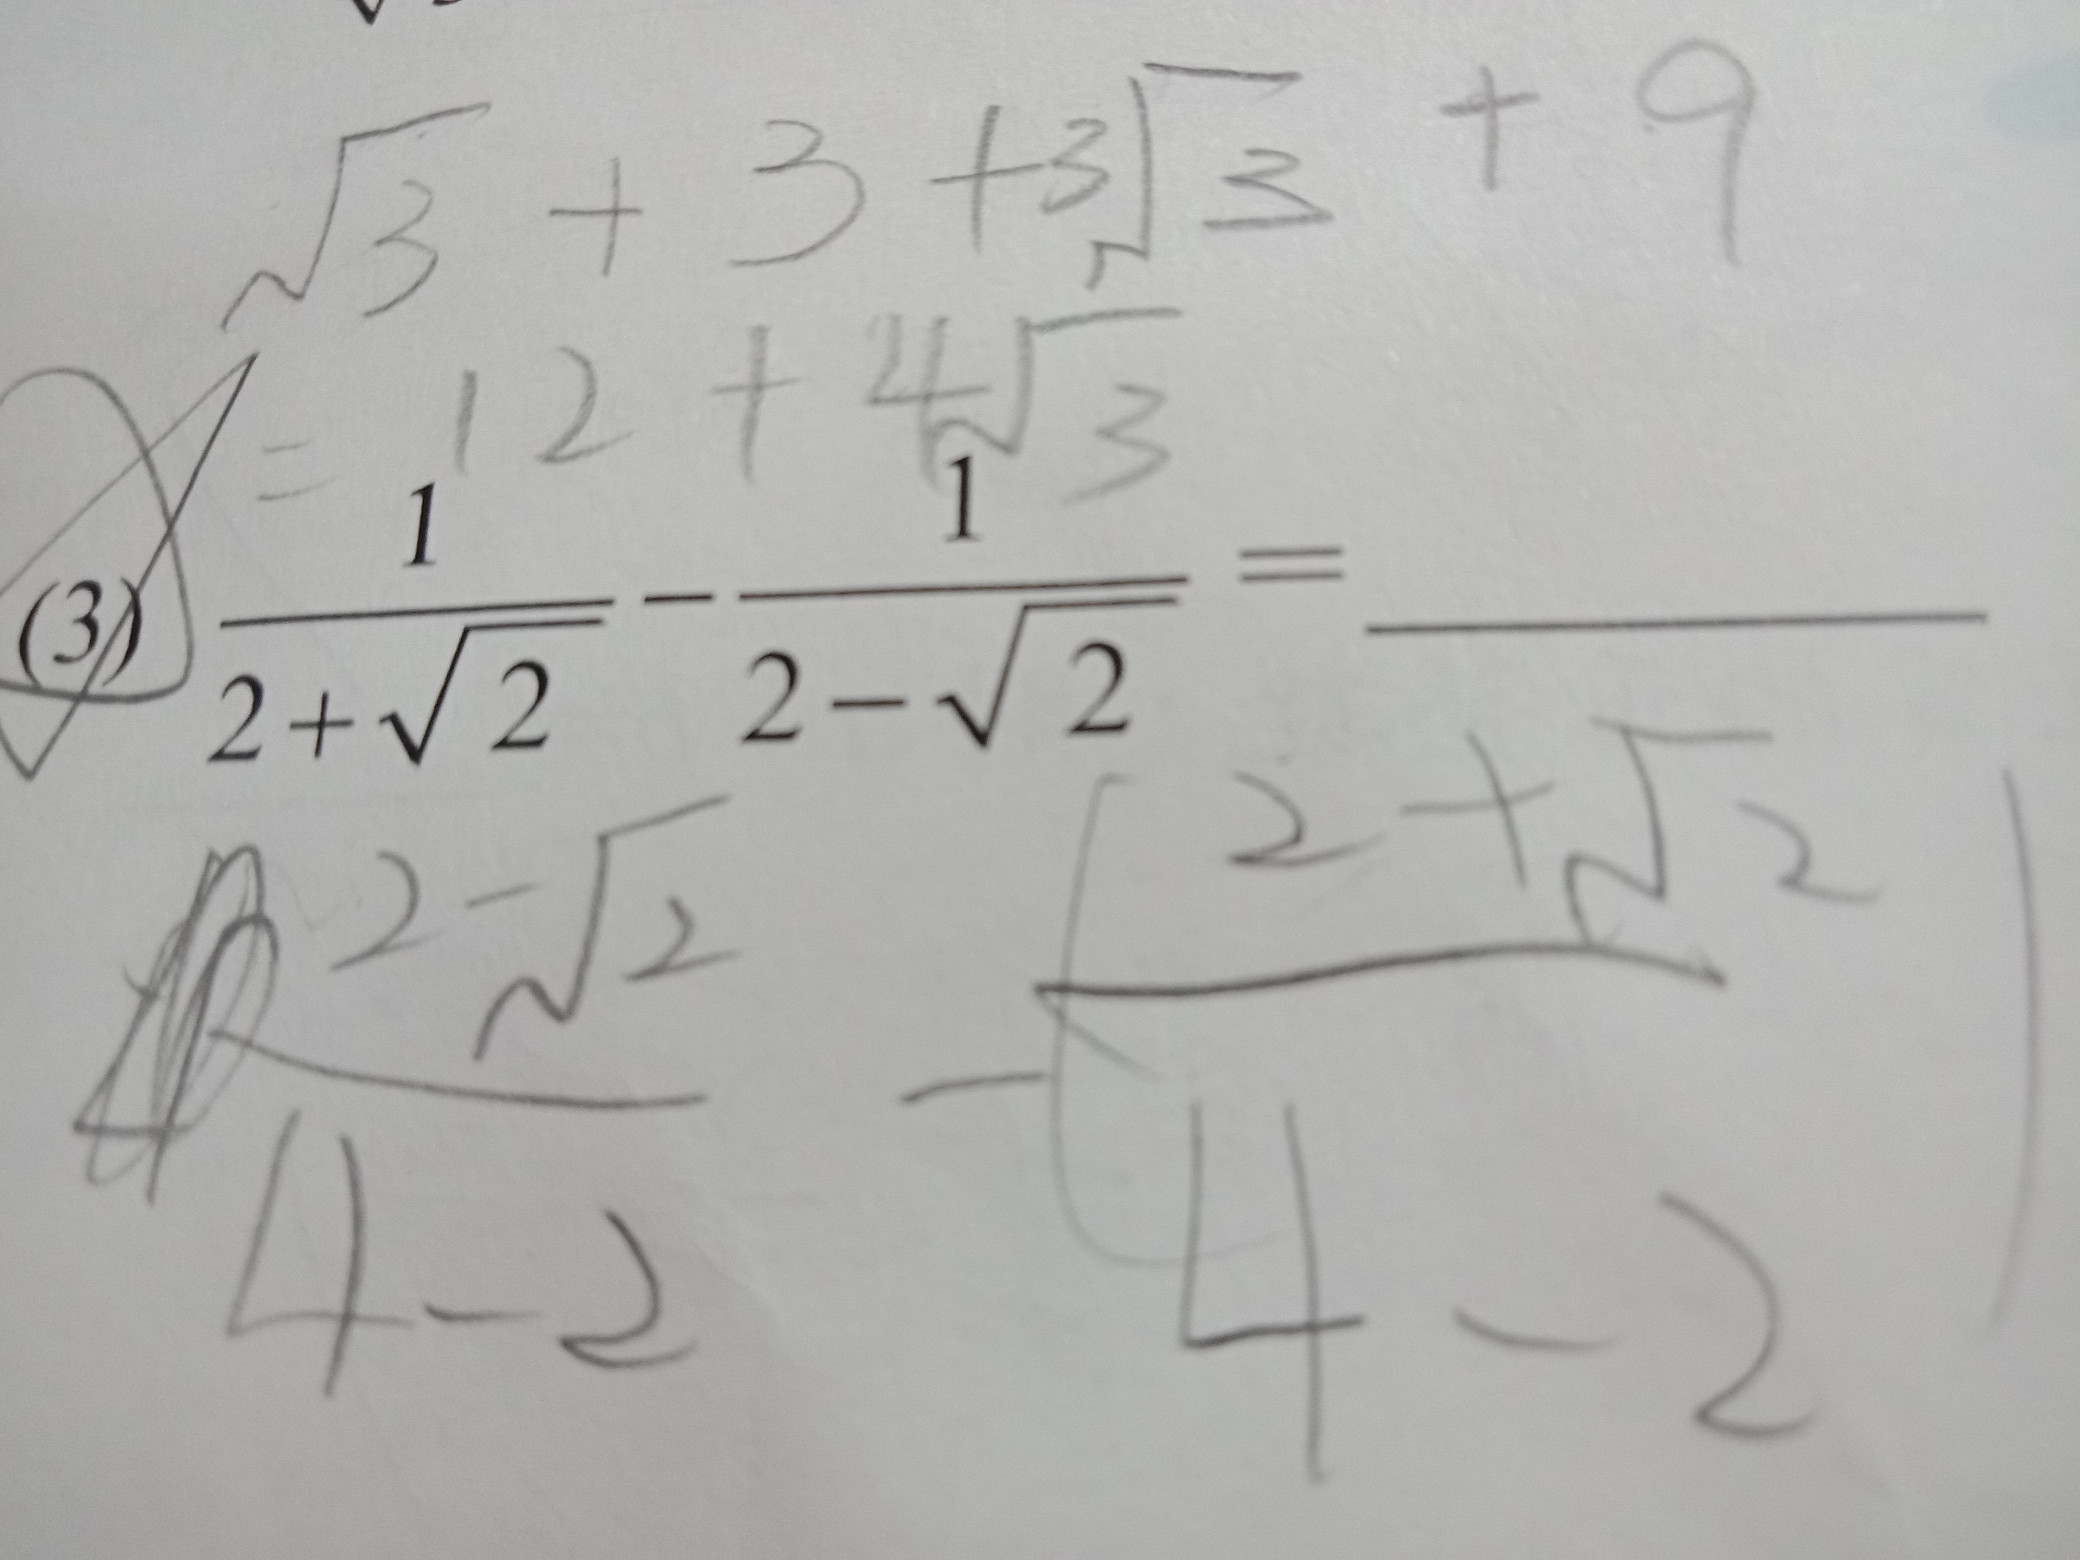 √3 + 3 + 3√3 + 9
= 12 + 4√3
(3) 1/(2+√2) - 1/(2-√2) = ______
(2-√2)/(4-2) - ((2+√2)/(4-2))